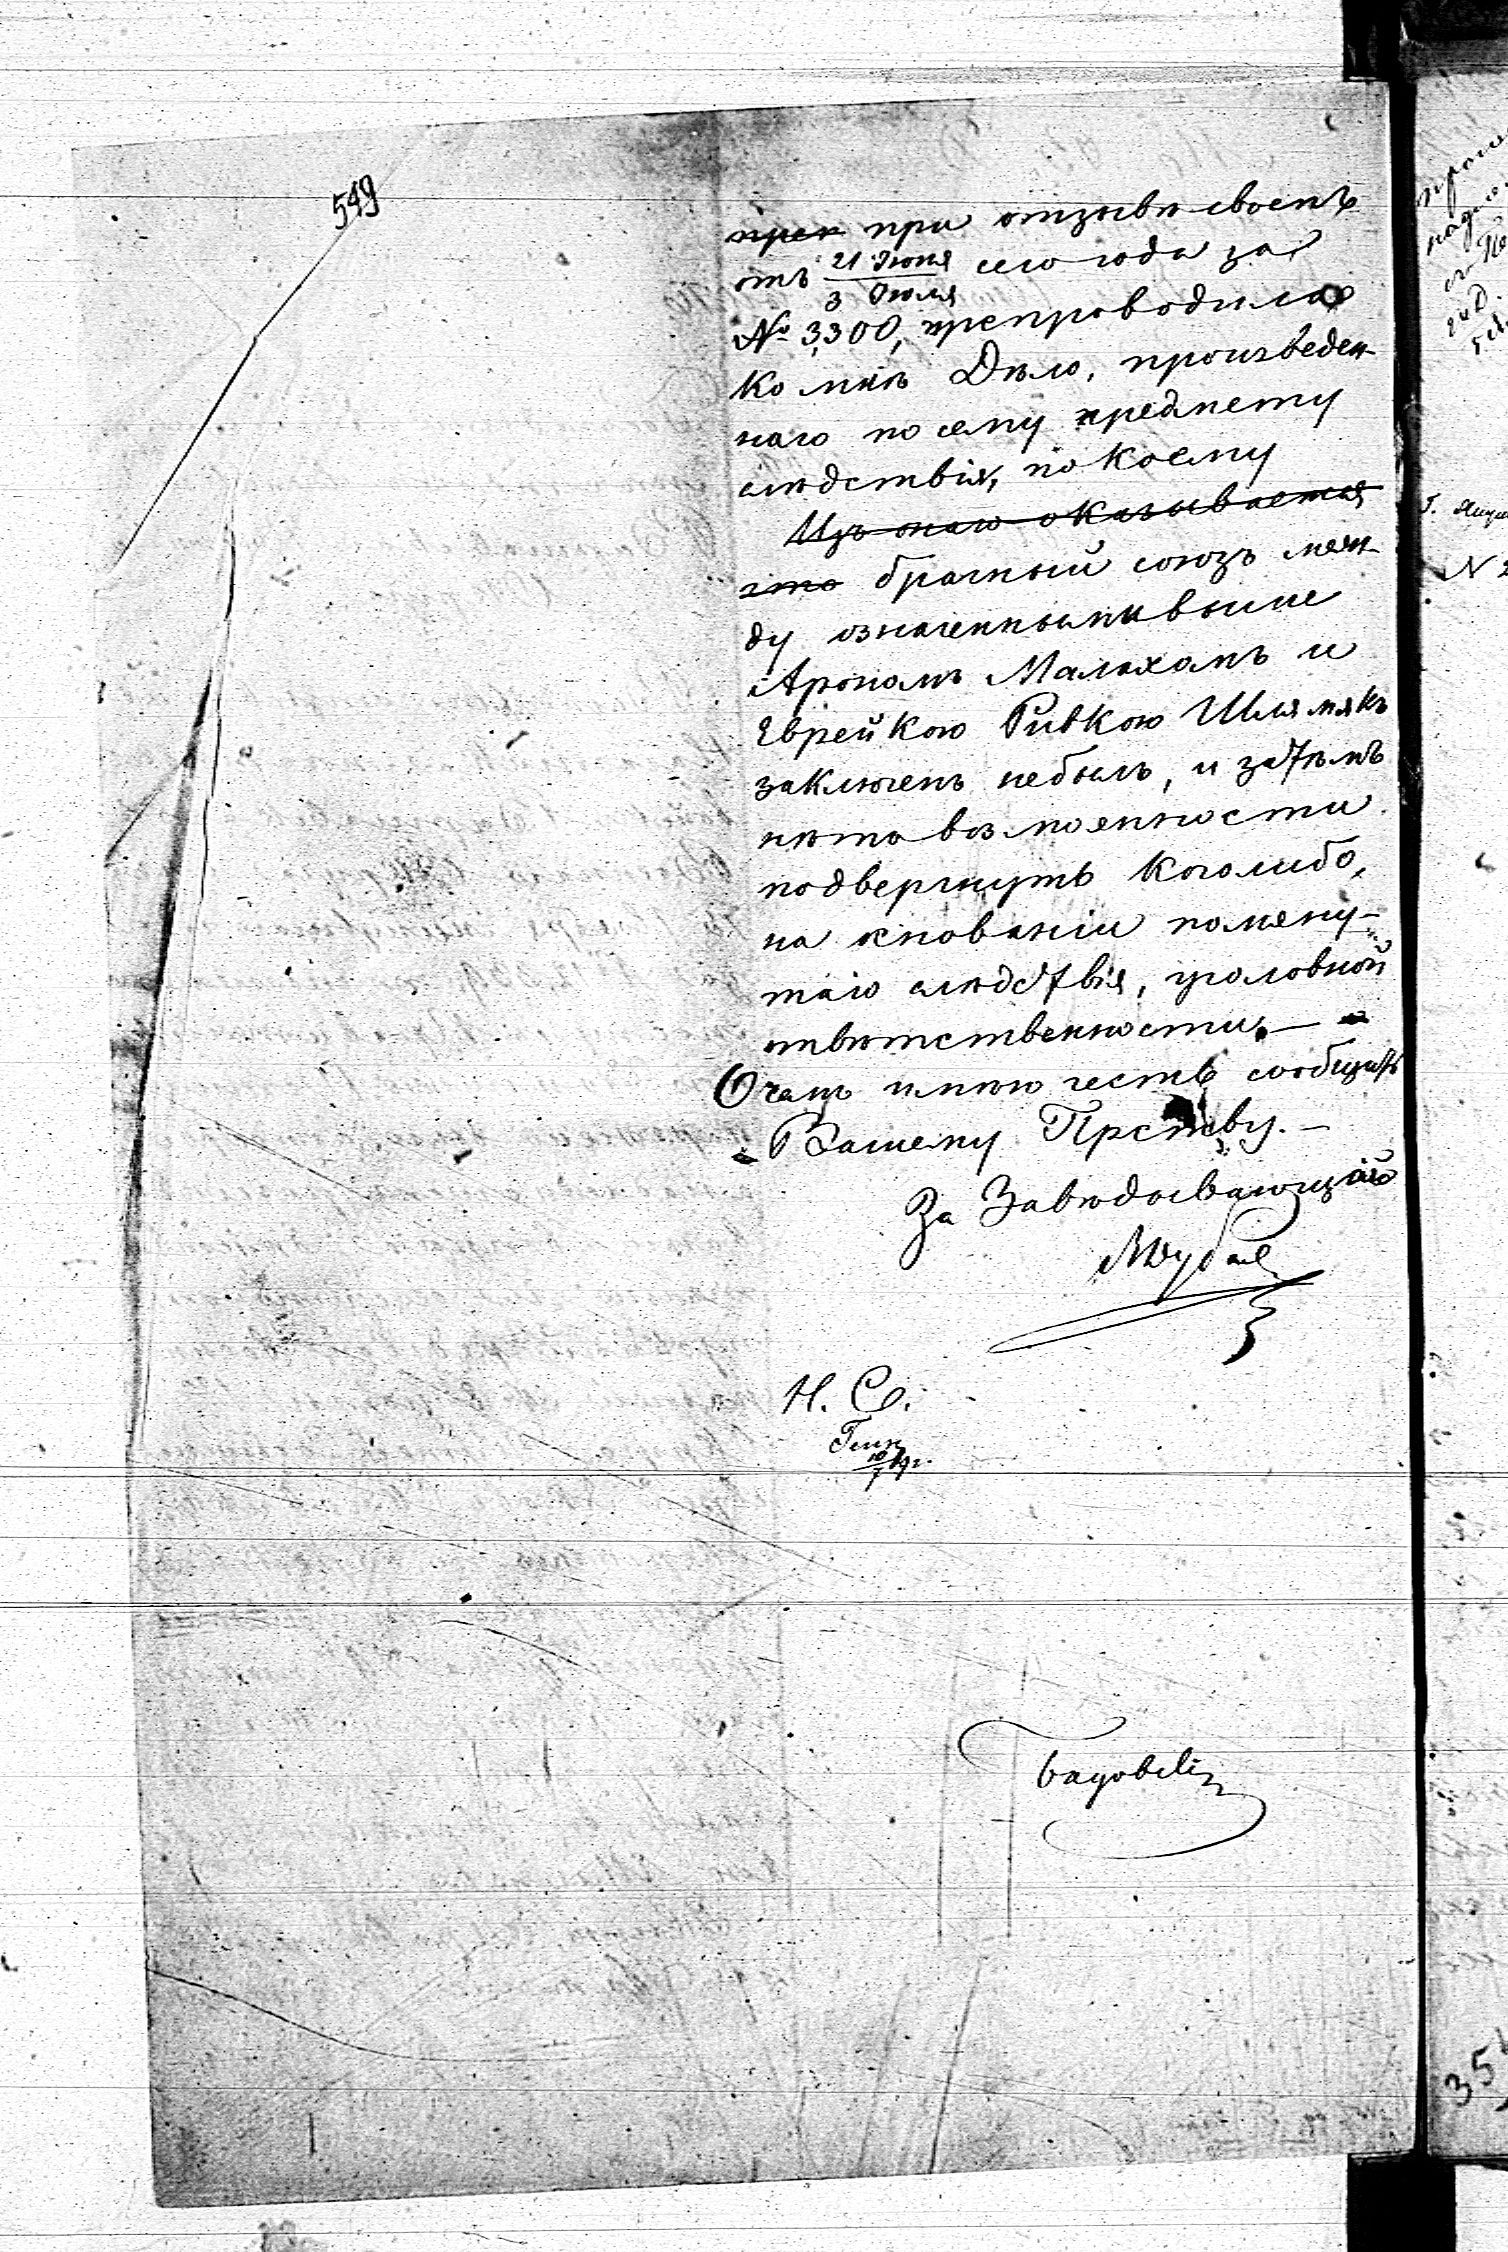 549
прен при отзывѣ своемъ
отъ 21 Июня / 3 Июля сего года за
№ 3,300, препроводило
ко мнѣ Дѣло, произведен-
наго по сему предмету
слѣдствія, по коему
Изъ онаго оказывается
что брачный союзъ меж-
ду означенными выше
Арономъ Малахомъ и
Еврейкою Ривкою Шлямякъ
заключенъ небылъ, и затѣмъ
нѣтъ возможности
подвергнуть коголибо,
на основаніи помяну-
таго слѣдствія, уголовной
отвѣтственности. —
О чемъ имѣю честь сообщить
Вашему Прству. —
За Завѣдывающаго
Н. С.